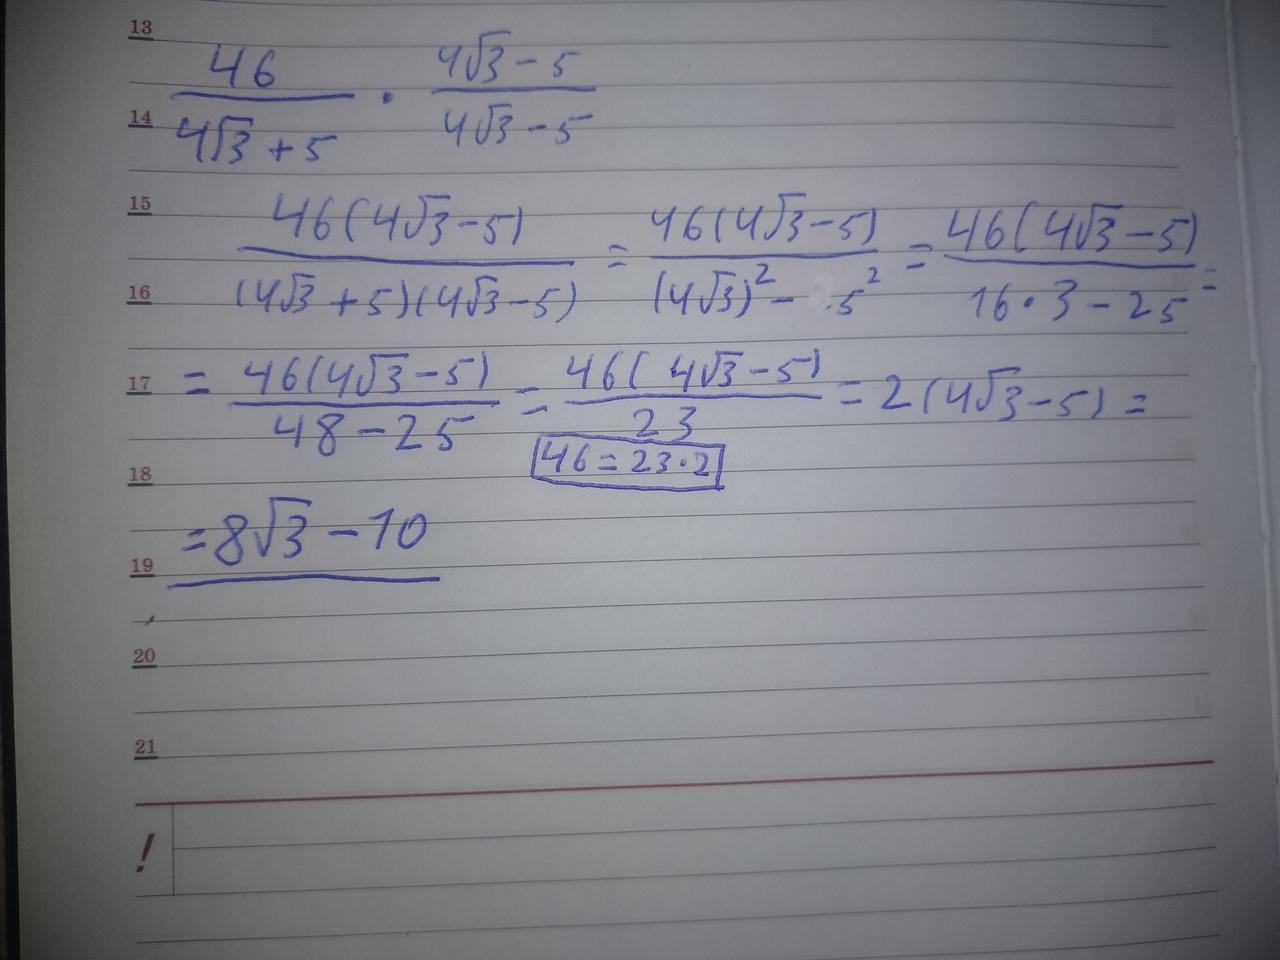 13
46/(4√3+5) · (4√3-5)/(4√3-5)
14
15
46(4√3-5)/((4√3+5)(4√3-5)) = 46(4√3-5)/((4√3)²-5²) = 46(4√3-5)/(16·3-25) =
16
17
= 46(4√3-5)/(48-25) = 46(4√3-5)/23 = 2(4√3-5) =
46=23·2
18
=8√3-10
19
20
21
!